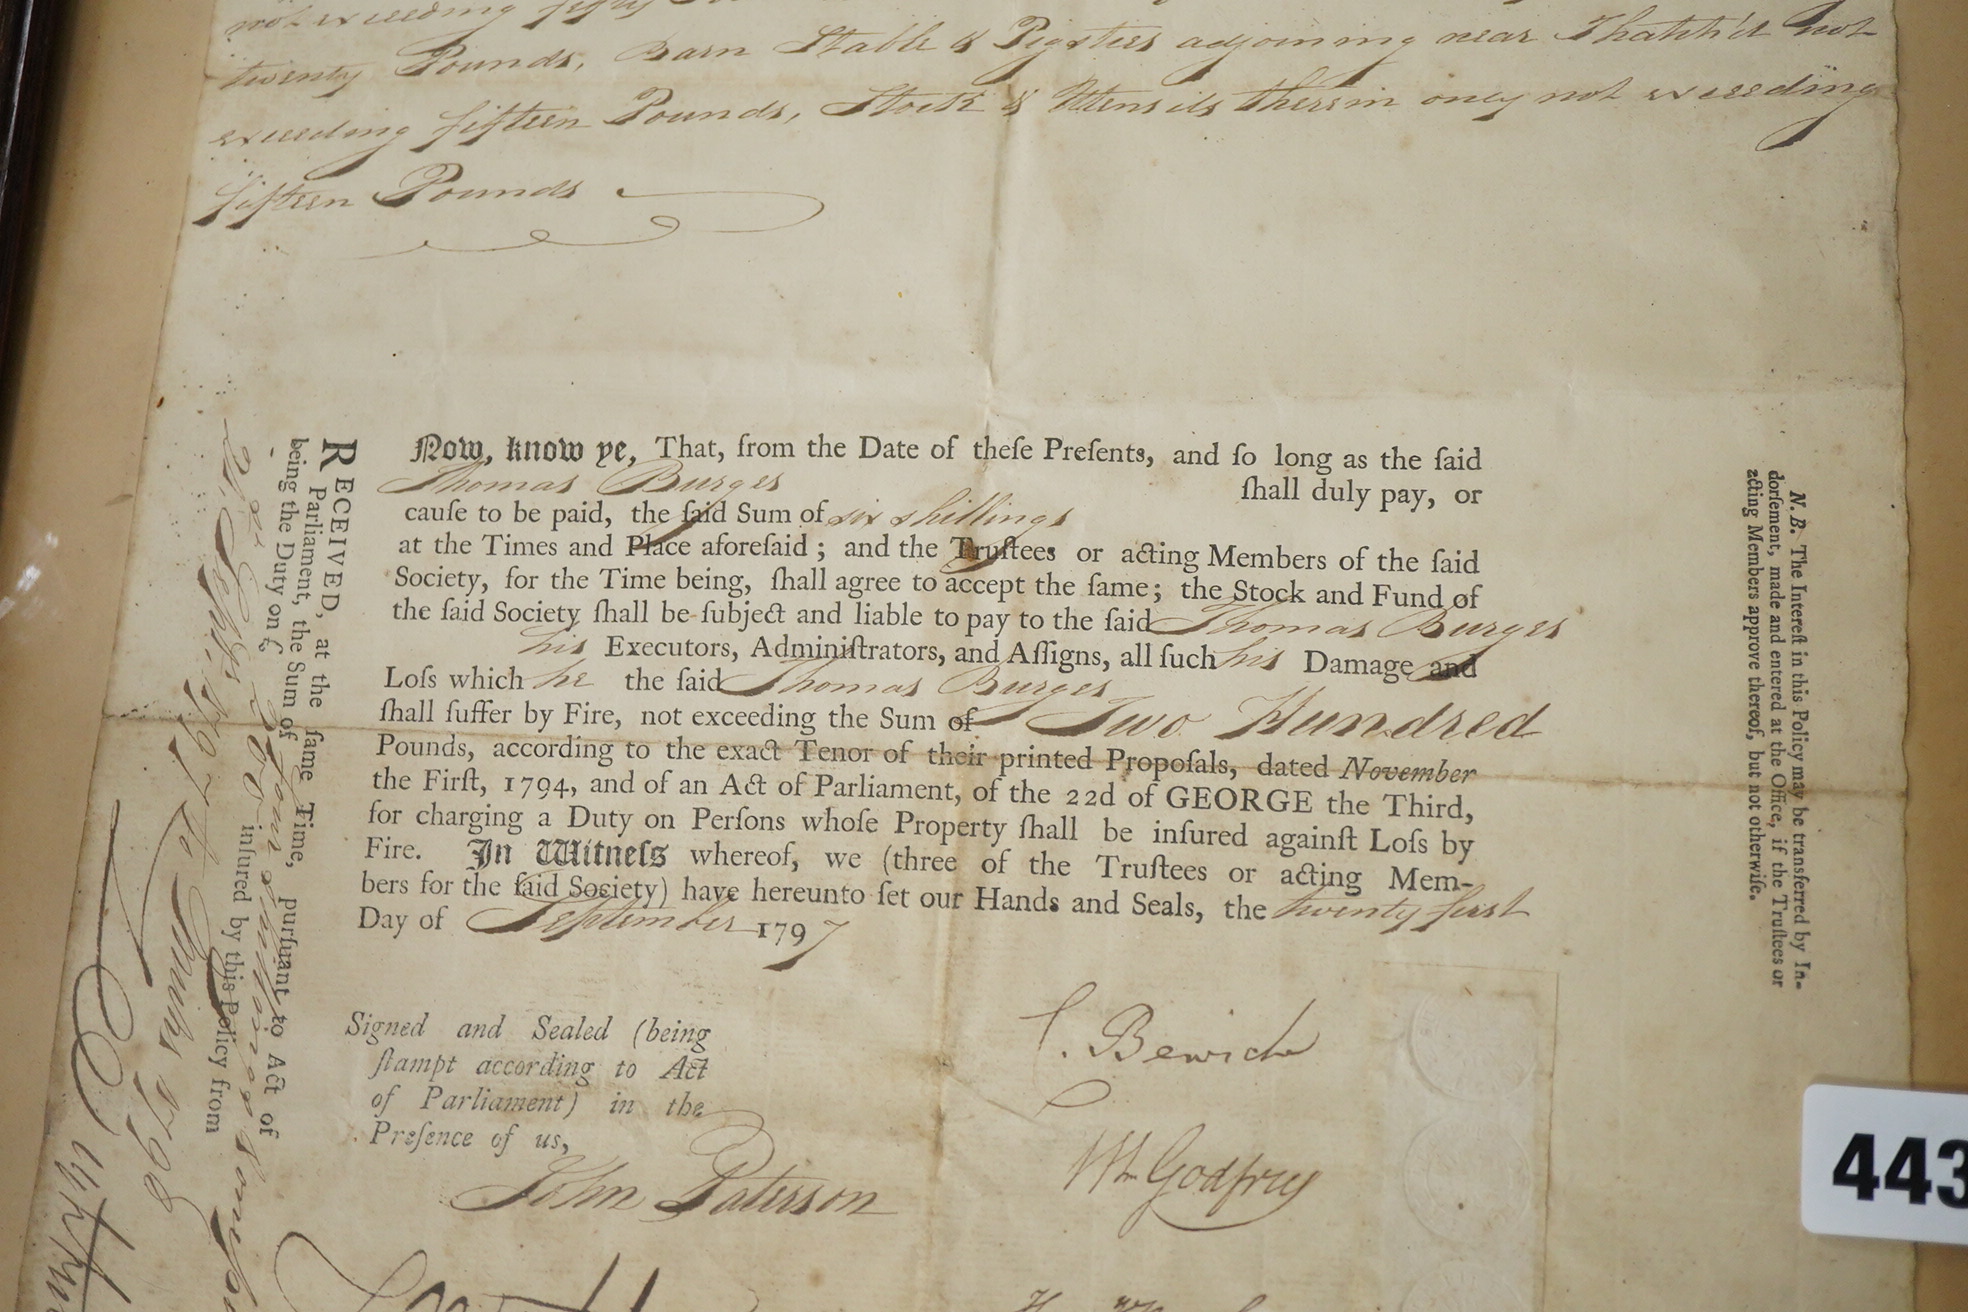 not exceeding fifty
twenty Pounds, Barn Stable & Pigsties adjoining near Thatch'd not
exceeding fifteen Pounds, Stock & Utensils therein only not exceeding
fifteen Pounds
Now, know ye, That, from the Date of theſe Preſents, and ſo long as the ſaid
Thomas Burges ſhall duly pay, or
cauſe to be paid, the ſaid Sum of six shillings
at the Times and Place aforeſaid; and the Truſtees or acting Members of the ſaid
Society, for the Time being, ſhall agree to accept the ſame; the Stock and Fund of
the ſaid Society ſhall be ſubject and liable to pay to the ſaid Thomas Burges
his Executors, Adminiſtrators, and Aſſigns, all ſuch his Damage and
Loſs which he the ſaid Thomas Burges
ſhall ſuffer by Fire, not exceeding the Sum of Two Hundred
Pounds, according to the exact Tenor of their printed Propoſals, dated November
the Firſt, 1794, and of an Act of Parliament, of the 22d of GEORGE the Third,
for charging a Duty on Perſons whoſe Property ſhall be inſured againſt Loſs by
Fire. In Witneſs whereof, we (three of the Truſtees or acting Mem-
bers for the ſaid Society) have hereunto ſet our Hands and Seals, the twenty first
Day of September 1797
Signed and Sealed (being
ſtampt according to Act
of Parliament) in the
Preſence of us,
John Paterson
C. Bewick
Wm Godfrey
RECEIVED, at the ſame Time, purſuant to Act of
Parliament, the Sum of
being the Duty on £ 200 inſured by this Policy from
21 Sepr. 1797 to Xmas 1798
N.B. The Intereſt in this Policy may be transferred by In-
dorſement, made and entered at the Office, if the Truſtees or
acting Members approve thereof, but not otherwiſe.
443